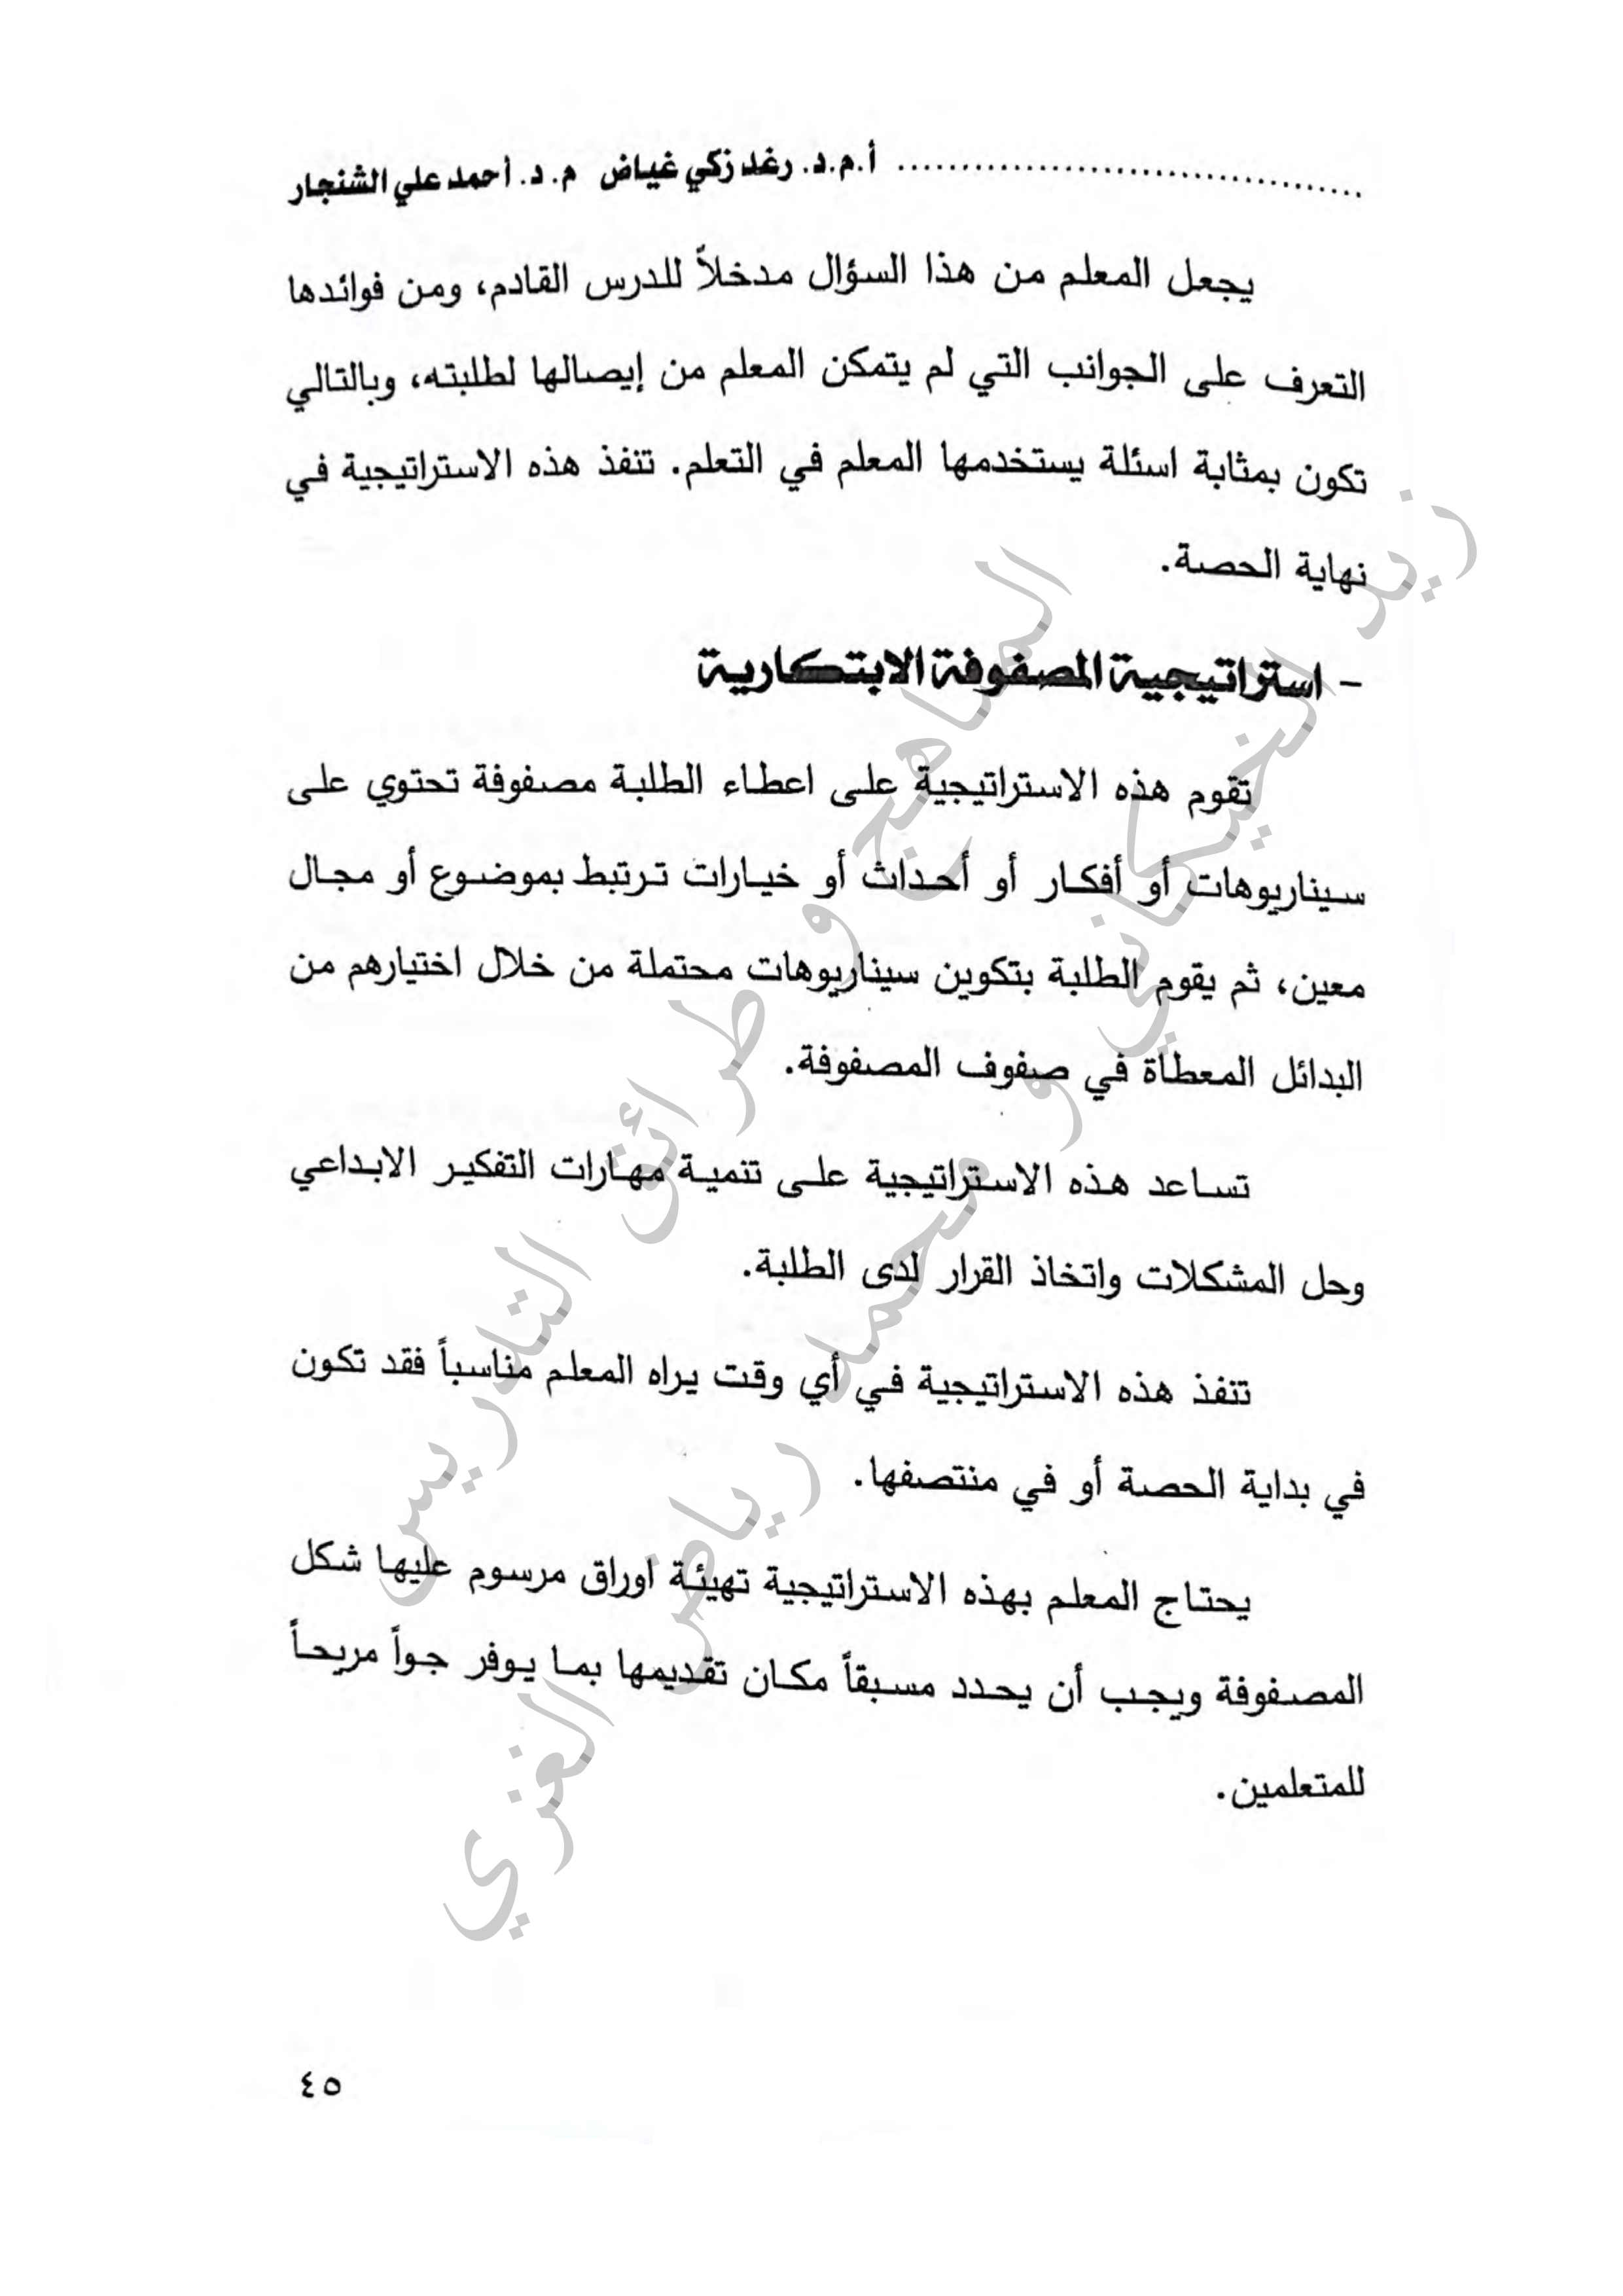 أ.م.د. رغد زكي غياض م. د. أحمد علي الشنجار
يجعل المعلم من هذا السؤال مدخلاً للدرس القادم، ومن فوائدها
التعرف على الجوانب التي لم يتمكن المعلم من إيصالها لطلبته، وبالتالي
تكون بمثابة اسئلة يستخدمها المعلم في التعلم. تنفذ هذه الاستراتيجية في
نهاية الحصة.
- استراتيجية المصفوفة الابتكارية
تقوم هذه الاستراتيجية على اعطاء الطلبة مصفوفة تحتوي على
سيناريوهات أو أفكار أو أحداث أو خيارات ترتبط بموضوع أو مجال
معين، ثم يقوم الطلبة بتكوين سيناريوهات محتملة من خلال اختيارهم من
البدائل المعطاة في صفوف المصفوفة.
تساعد هذه الاستراتيجية على تنمية مهارات التفكير الابداعي
وحل المشكلات واتخاذ القرار لدى الطلبة.
تنفذ هذه الاستراتيجية في أي وقت يراه المعلم مناسباً فقد تكون
في بداية الحصة أو في منتصفها.
يحتاج المعلم بهذه الاستراتيجية تهيئة اوراق مرسوم عليها شكل
المصفوفة ويجب أن يحدد مسبقاً مكان تقديمها بما يوفر جواً مريحاً
للمتعلمين.
٤٥
المناهج و طرائق التدريس
زيد الخيكاني و محمد رياض الغزي